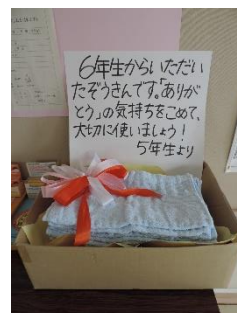 6年生からいただい
たぞうきんです。「ありが
とう」の気持ちをこめて、
大切に使いましょう！
5年生より